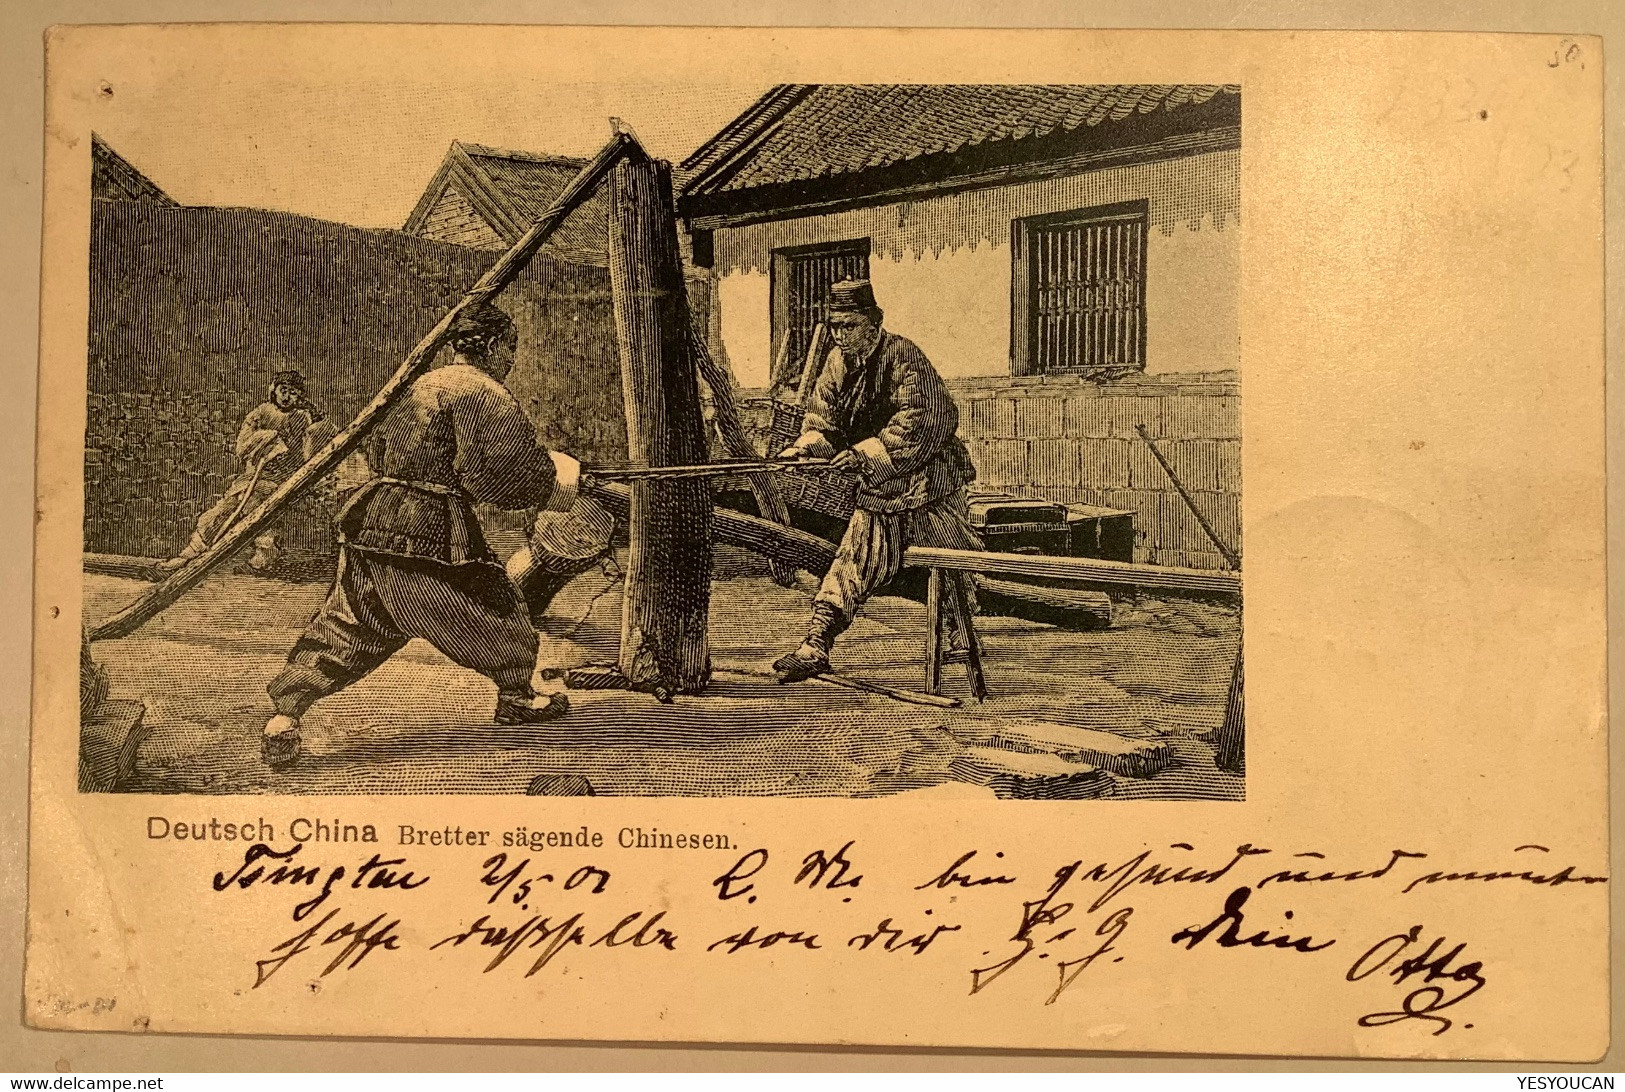 50.
Deutsch China Bretter sägende Chinesen.
Tsingtau 2/5. 01 L. M. bin gesund und munter
hoffe dasselbe von dir H. G. Dein Otto
YESYOUCAN